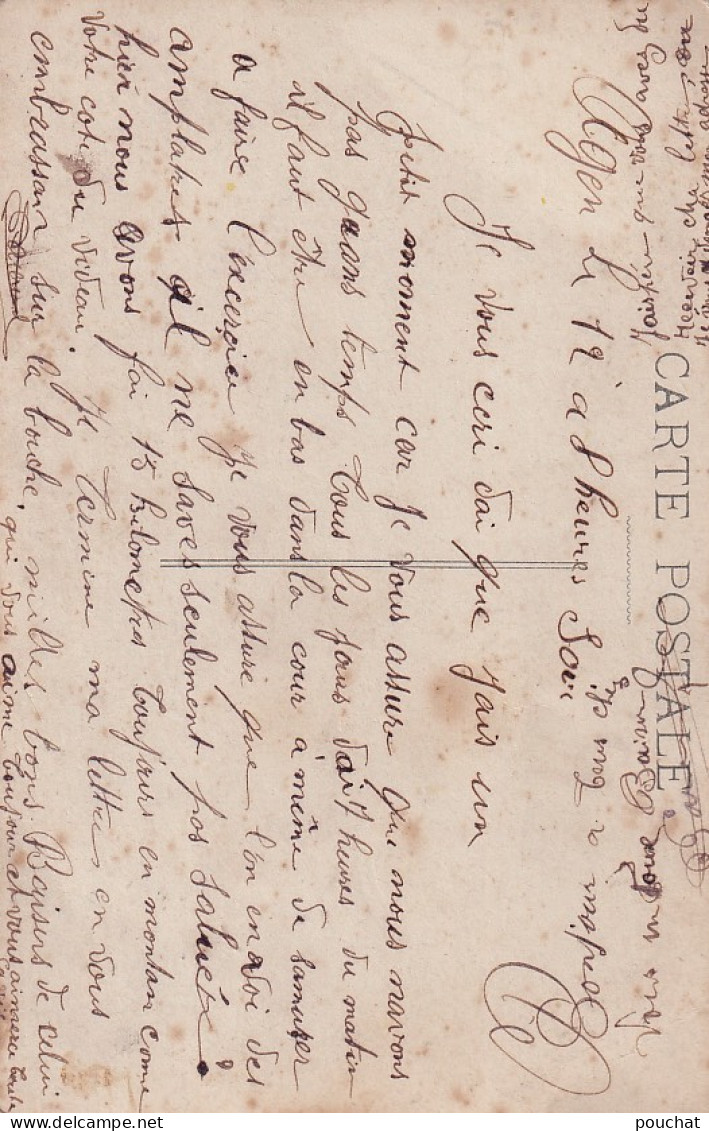 CARTE POSTALE
Agen le 12 a 8 heures Soir
Je vous ecri dai que jais un
petit moment car je vous assure que nous navons
pas quans temps tous les jours dai 7 heures du matin
il faut être en bas dans la cour a même de samuser
a faire l'excercice je vous assure que l'on en voi des
amplatres qil ne saves seulement pas salué.
hier nous avons fai 15 kilometres toujours en montan come
votre cote du videau. Je termine ma lettre en vous
embrassan sur la bouche, milles bons Baisers de celui
qui vous aime toujour et vous aimera toute
Jaispére que vous aves du
recevoir cha lettre
Je vous mon adresse
pouchat